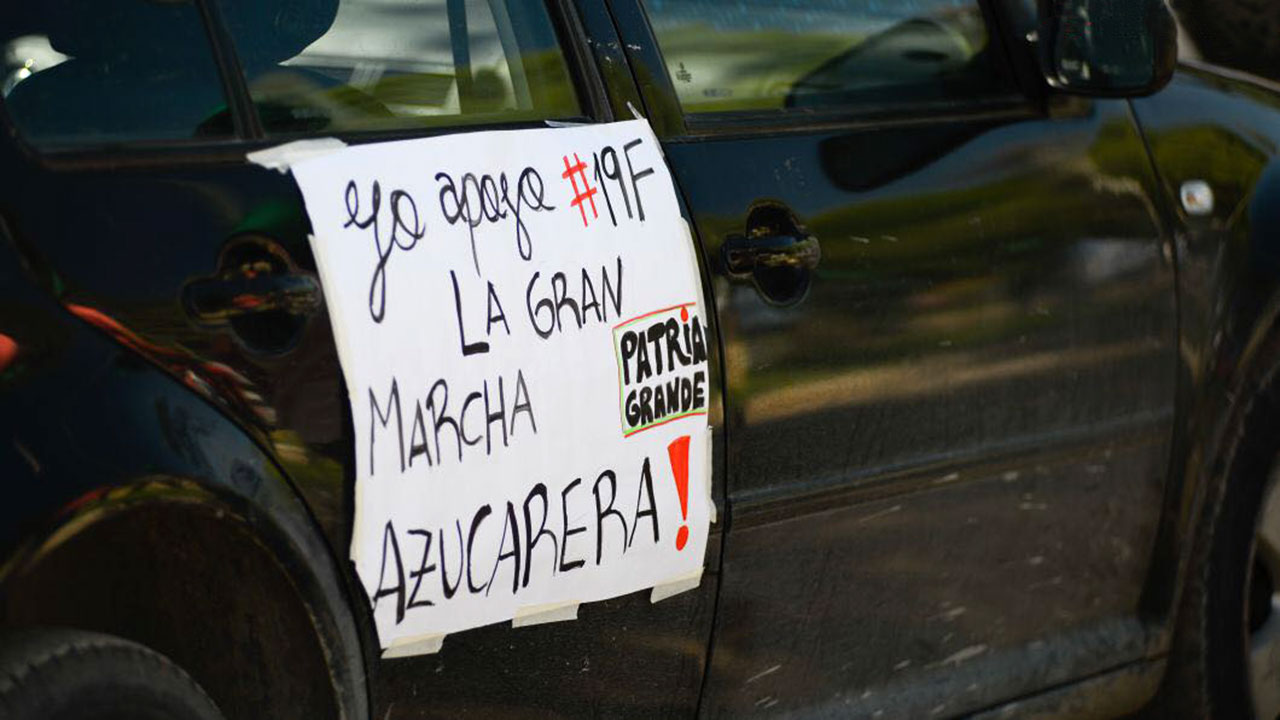 yo apoyo #19F
LA GRAN
PATRiA
GRANDE
MARCHA
AZUCARERA!